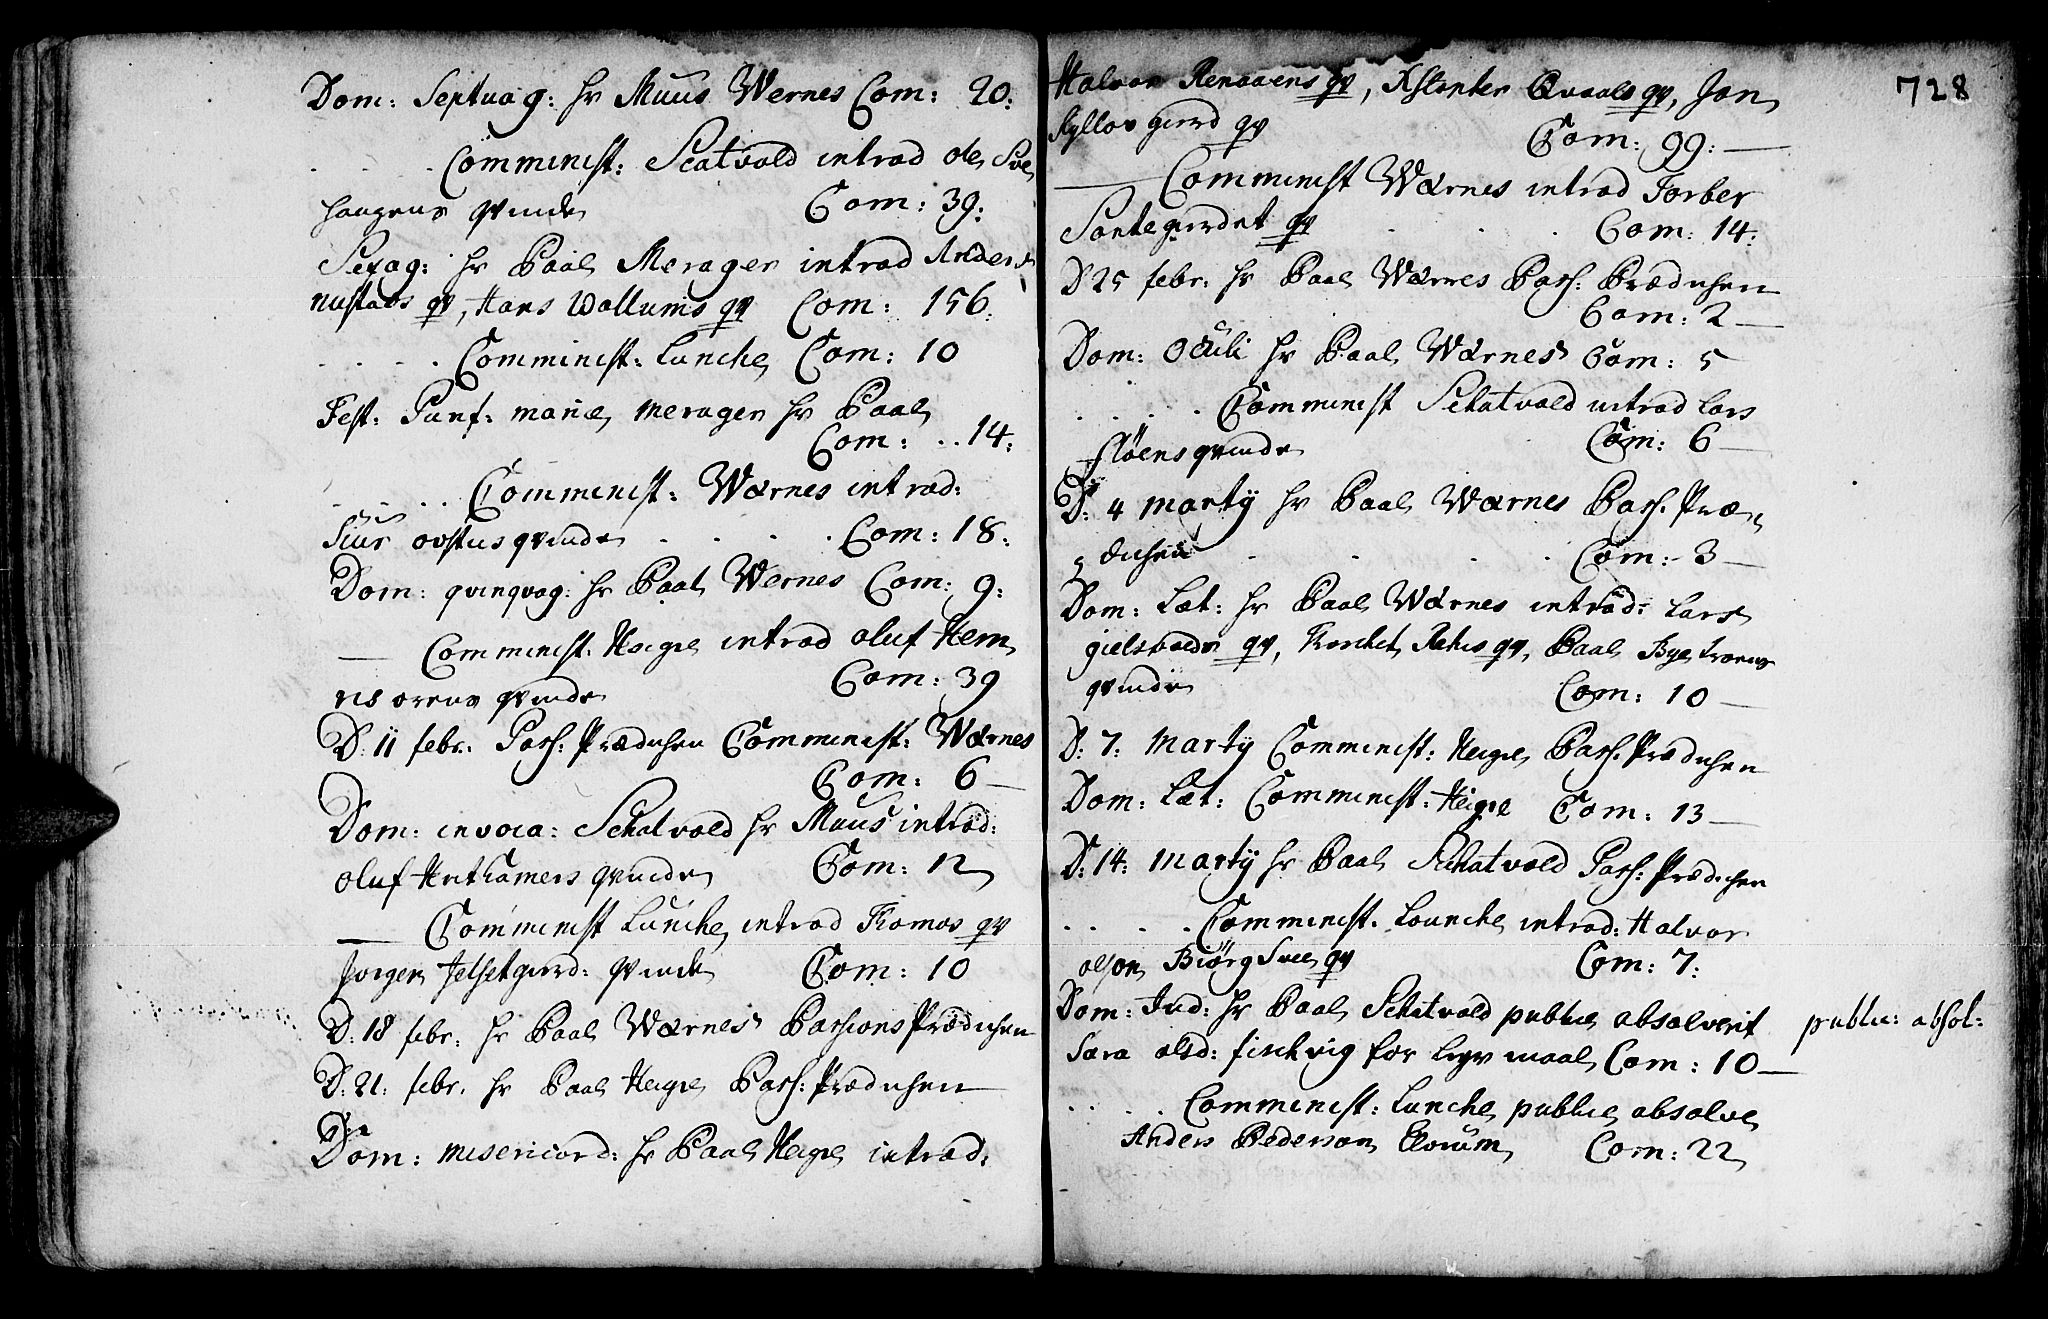 Dom: Septuag: hr Muus Wernes Com: 20:
. . . . Comminist: Scatvold introd ole Sve
haugens qvinde Com: 39:
Sexag: hr Paal Merager introd Anders
nustads qv, Hans Wollums qv Com: 156.
. . . . Comminist: Lunche, Com: 10
Fest: Purif: mariæ, merager hr Paal
Com: . . 14:
. . . . Comminist: Wærnes introd:
Siur ovstus qvinde . . . . Com: 18:
Dom: qvinqvag: hr Paal Wernes Com: 9:
— Comminist. Heigre introd oluf Hem
nis orens qvinde Com: 39
D: 11 febr. Pass: Prædichen Comminist: Wærnes
Com: 6 —
Dom: invoca: Schatvold hr Muus introd:
oluf Hrithamers qvinde Com: 12
— Comminist Lunche introd Thomos qv
Jorgen Jelsetgierd: qvinde Com: 10
D: 18 febr. hr Paal Wærnes Passions Prædichen
D: 21: febr. hr Paal Heigre Pass: Prædichen
Dom: misericord: hr Paal Heigre introd:
728
Halvor Renaaens qv, Kstenter Qvaals qv, Jon
Kyllos gierd qv Com: 99: —
— Comminist Wærnes introd Torber
Sontegierdet qv . . . Com: 14:
D 25 febr. hr Paal Wærnes Pass: Prædichen
Com: 2 —
Dom: Oculi hr Paal Wærnes Com: 5
. . . . Comminist Schatvold introd Lars
Fløens qvinde Com: 6 —
D: 4 marty hr Paal Wærnes Pass. Præ=
=dichen . . . . Com: 3 —
Dom: Læt: hr Paal Wærnes introd: Lars
gielsvolds qv, Torchel Rehis qv, Paal Bye troens
qvinde Com: 10 —
D: 7: Marty Comminist: Heigre Pass. Prædichen
Dom: Læt: Comminist: Heigre Com: 13 —
D: 14: Marty hr Paal Schatvold Pass: Prædichen
. . . . Comminist. Lounche, introd: Halvor
olson, Biørg Svee qv Com: 7:
Dom: Jud: hr Paal Schatvold publice absolverit
publice: absol:
Sara olsd: fischvig for leyermaal Com: 10 —
. . . . Comminist: Lunche, publice absolve
Anders Pederson Elvrum, Com: 22